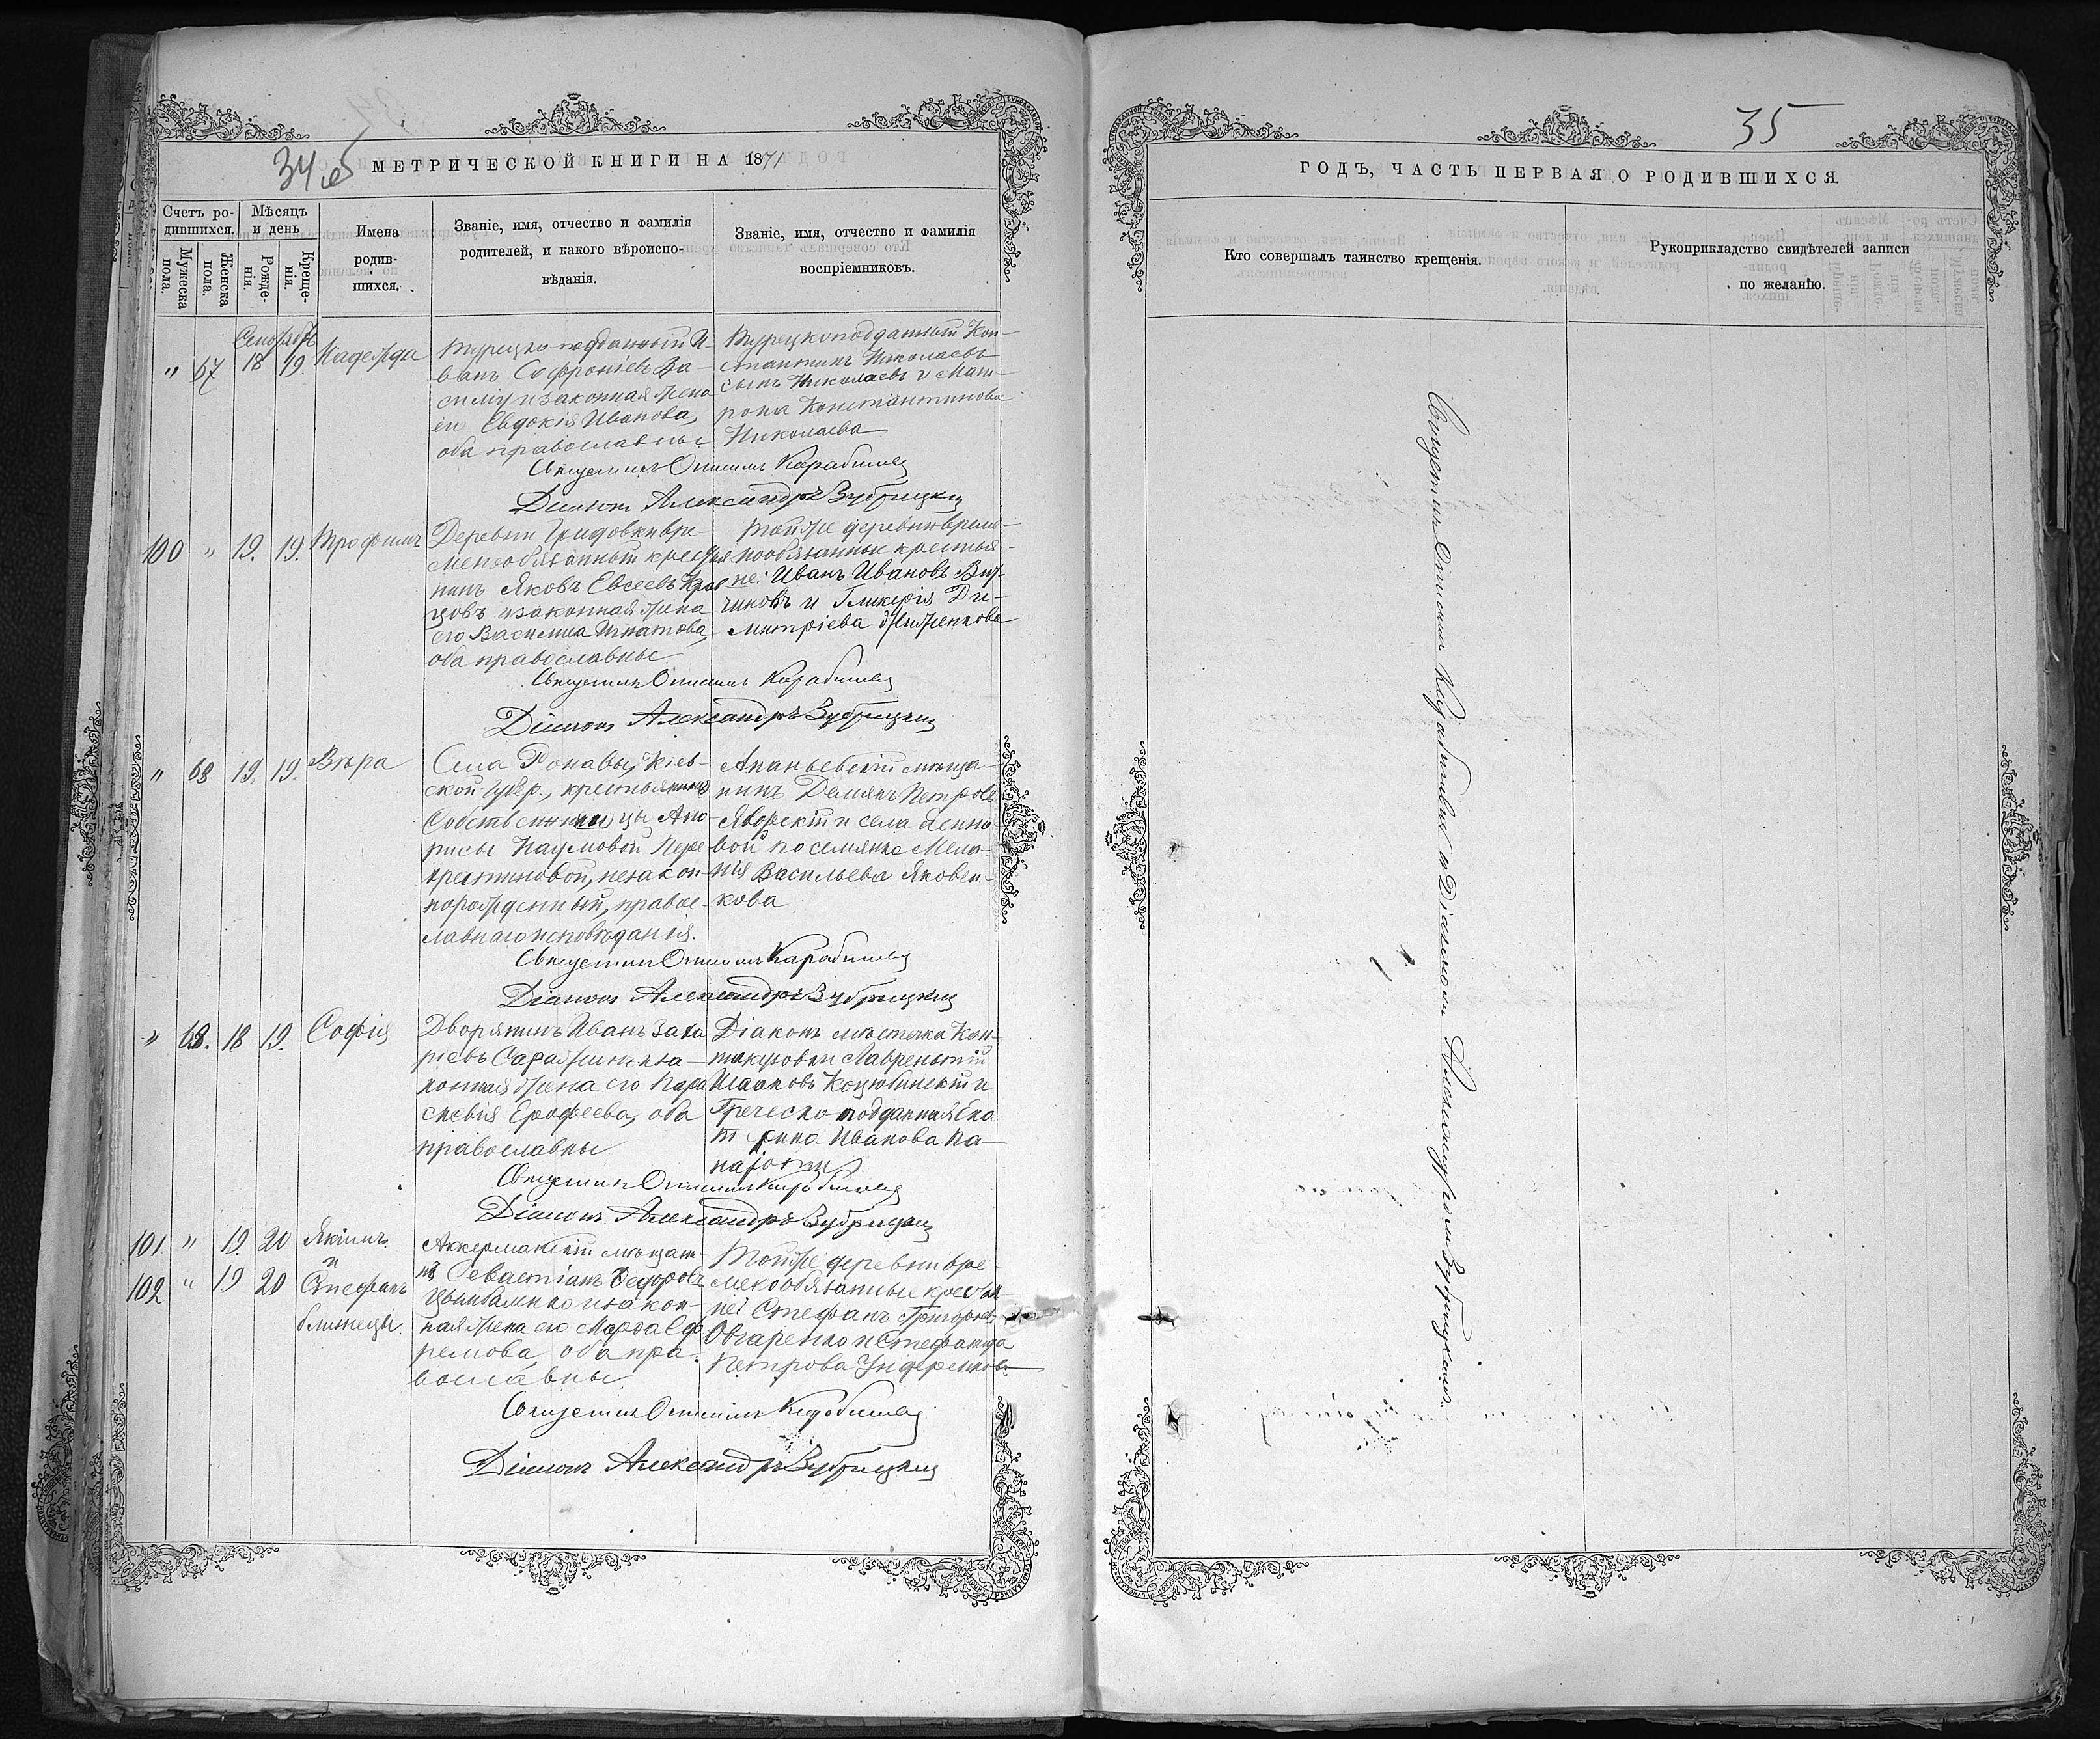 34 об
МЕТРИЧЕСКОЙ КНИГИ НА 1871
Счетъ ро-
дившихся.
Мужеска
пола.
Женска
пола.
Мѣсяцъ
и день
Рожде-
нія.
Креще-
нія.
Имена
родив-
шихся.
Званіе, имя, отчество и фамилія
родителей, и какого вѣроиспо-
вѣданія.
Званіе, имя, отчество и фамилія
воспріемниковъ.
Сентябрь
" 67 18 19 Надежда
Турецко подданный И-
ванъ Софроніевъ Ва-
силіу и законная жена
его Евдокія Иванова,
оба православные
Турецкоподданный Кон-
стантинъ Николаевъ
сынъ Николаевъ и Мат-
рона Константинова
Николаева
Священникъ
Діаконъ Александръ Зубрицкій
100 " 19. 19. Трофимъ
Деревни Гридовки вре-
меннообязанный крестья
нинъ Яковъ Евсеевъ Крав
цовъ и законная жена
его Василиса Игнатова,
оба православные.
Той же деревни времен-
нообязанные крестья-
не: Иванъ Ивановъ
и Гликерія Ди-
митріева
Священникъ
Діаконъ Александръ Зубрицкій
" 68 19. 19. Вѣра
Села Кіев-
ской губер., крестьянки
Собственницы
Наумовой Пере
крестиновой, незакон-
норожденный, правос-
лавнаго исповѣданія.
Ананьевскій мѣща-
нинъ Демянъ Петровъ
Яворскій и села Ясино-
вой поселянка Мела-
нія Васильева Яковен-
кова
Священникъ
Діаконъ Александръ Зубрицкій
" 69. 18 19. Софія
Дворянинъ Иванъ Заха
ріевъ и за-
конная жена его Пара
скевія Ерофеева, оба
православны.
Діаконъ мѣстечка Кан-
такузовки Лаврентій
Исааковъ Коцюбинскій и
Греческо подданная Ека
терина Иванова Па-
наіоти
Священникъ
Діаконъ Александръ Зубрицкій
101. " 19. 20 Якимъ
и
102 " 19 20 Стефанъ
близнецы.
Аккерманскій мѣщан-
нъ Севастіанъ Ѳедоровъ
Цымбаленко и закон-
ная жена его Марѳа Еф
ремова, оба пра-
вославны
Той же деревни вре-
меннообязанные крестья-
не: Стефанъ Григорьевъ
Овчаренко и Стефанида
Петрова
Священникъ
Діаконъ Александръ Зубрицкій
35
ГОДЪ, ЧАСТЬ ПЕРВАЯ О РОДИВШИХСЯ.
Кто совершалъ таинство крещенія.
Рукоприкладство свидѣтелей записи
по желанію.
Священникъ съ Діакономъ Александромъ Зубрицкимъ.